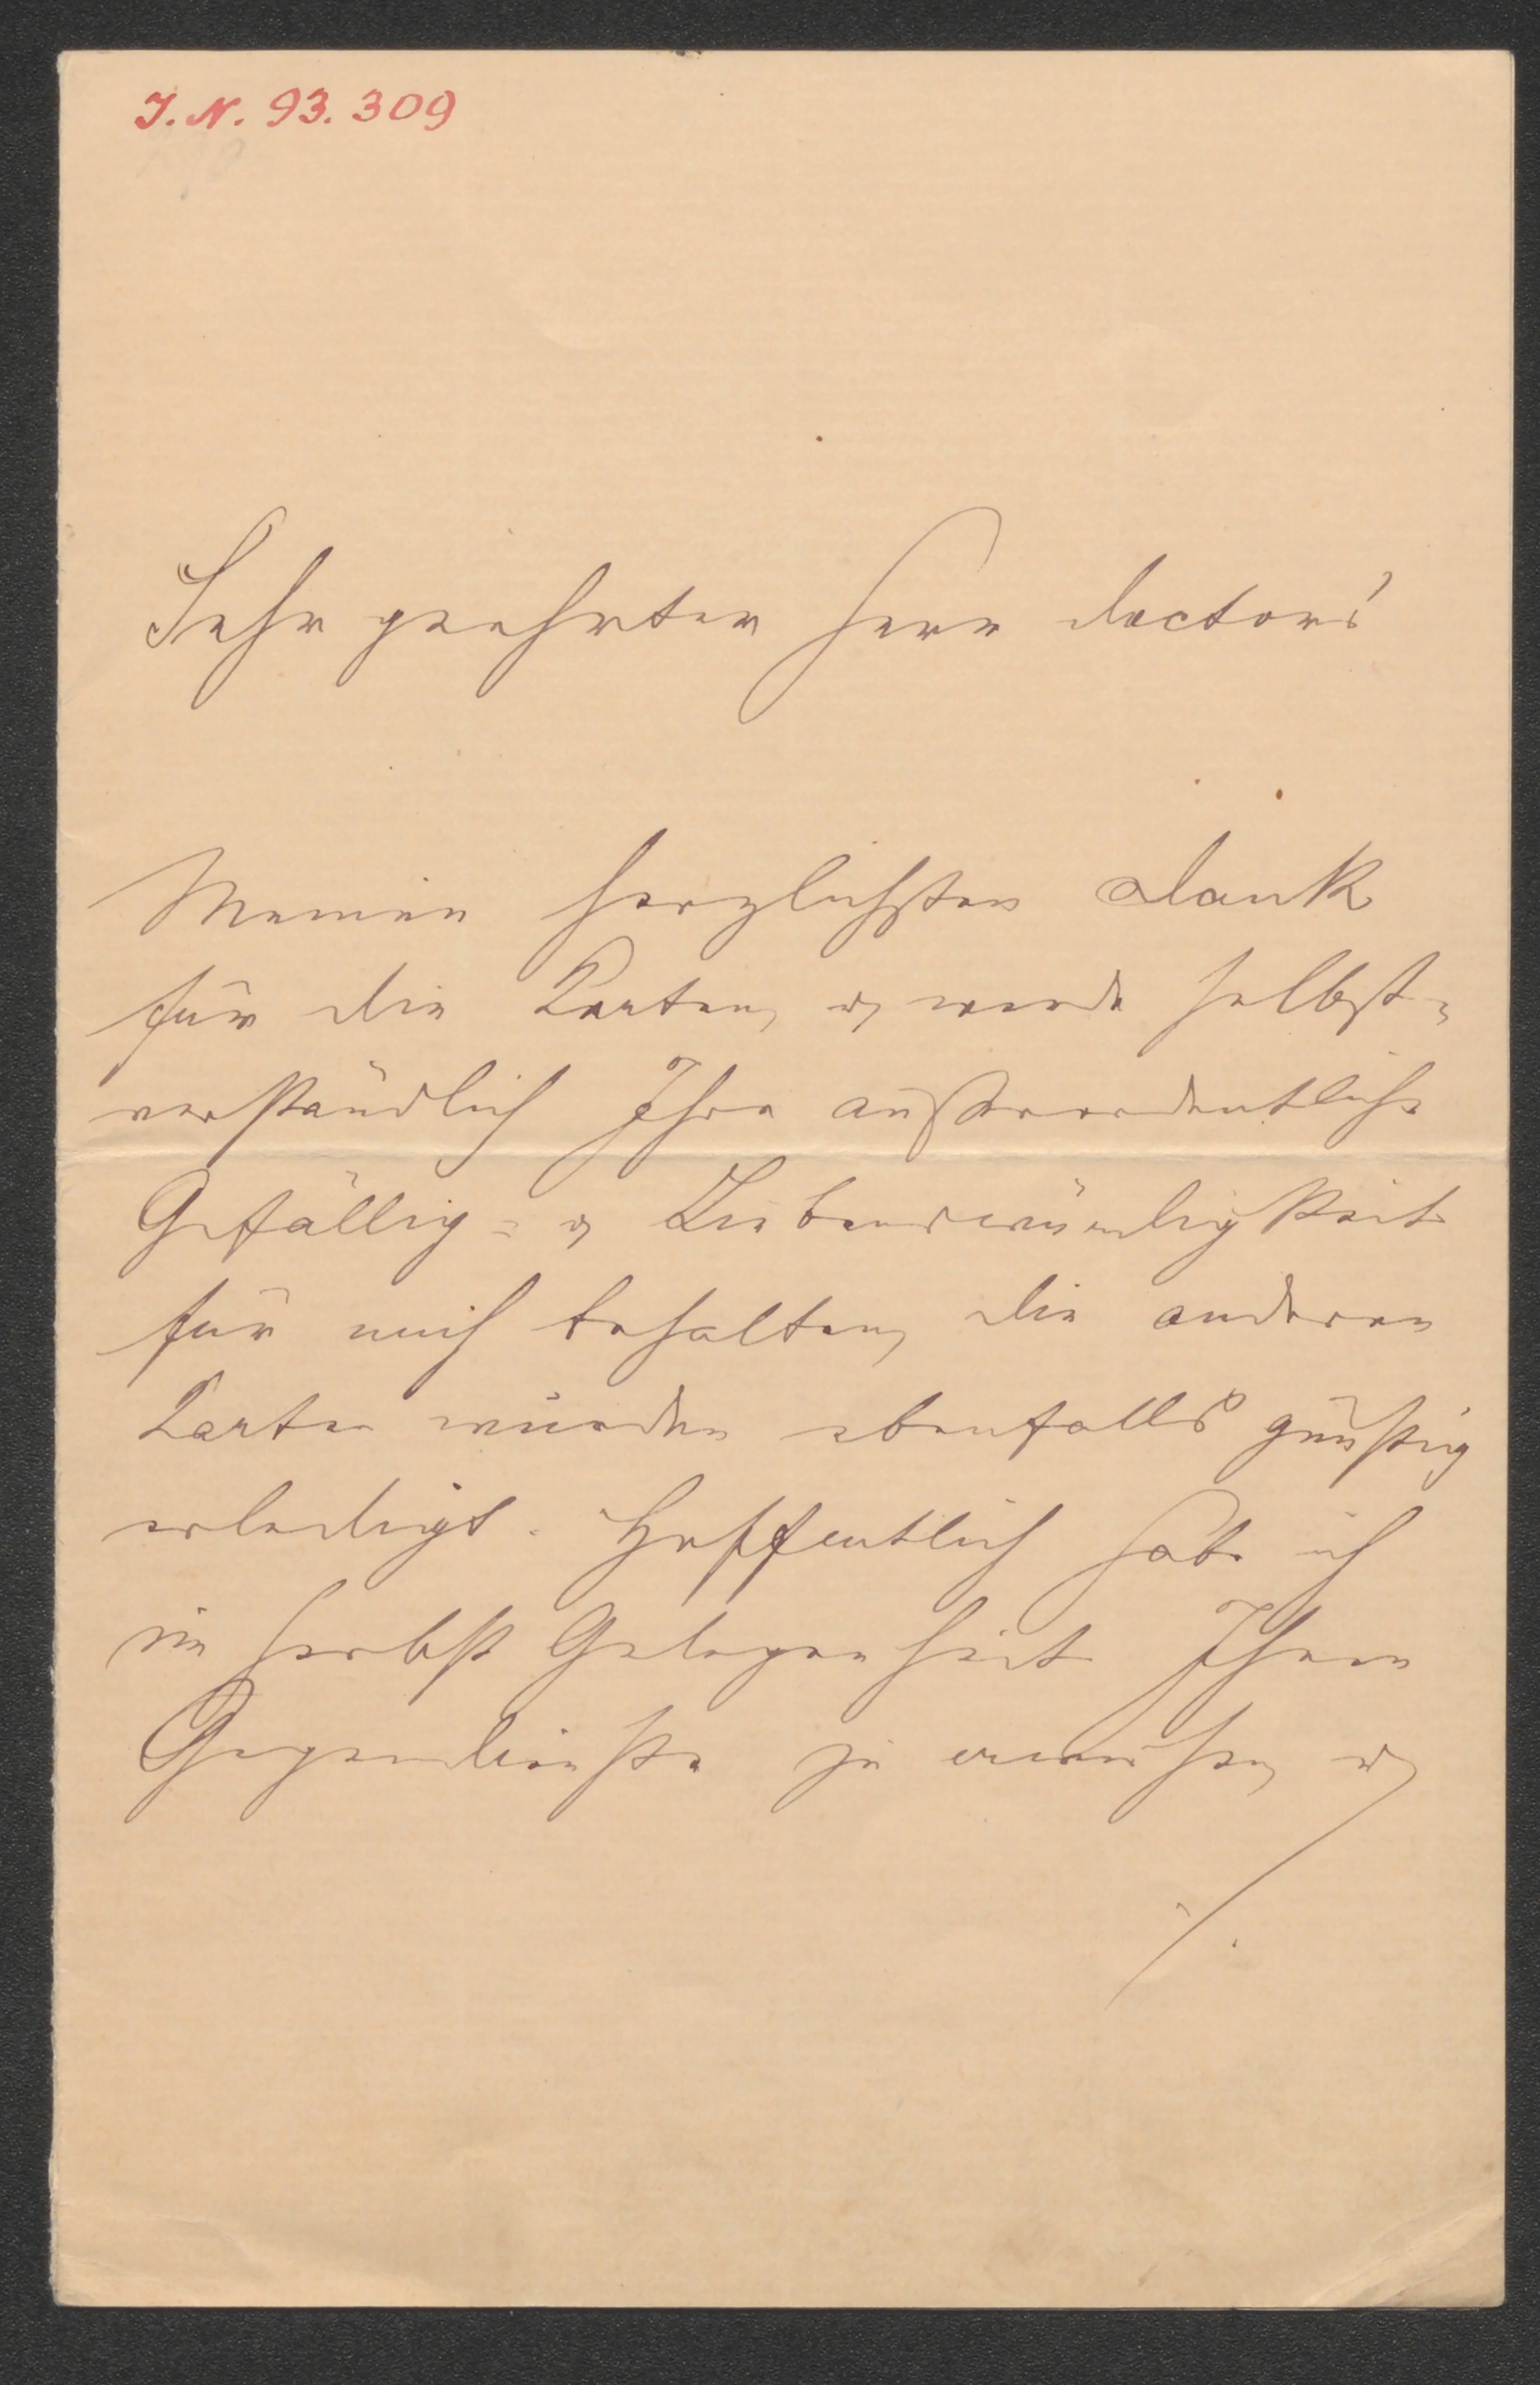 I. N. 93.309
Sehr geehrter Herr Doctor!
Meinen herzlichsten Dank
für die Karten, u werde selbst-
verständlich Ihre außerordentliche
Gefällig- u Liebenswürdigkeit
für mich behalten, die anderen
Karten wurden ebenfalls günstig
erledigt. Hoffentlich habe ich
im Herbst Gelegenheit Ihnen
Gegendienste zu erweisen, u
./.